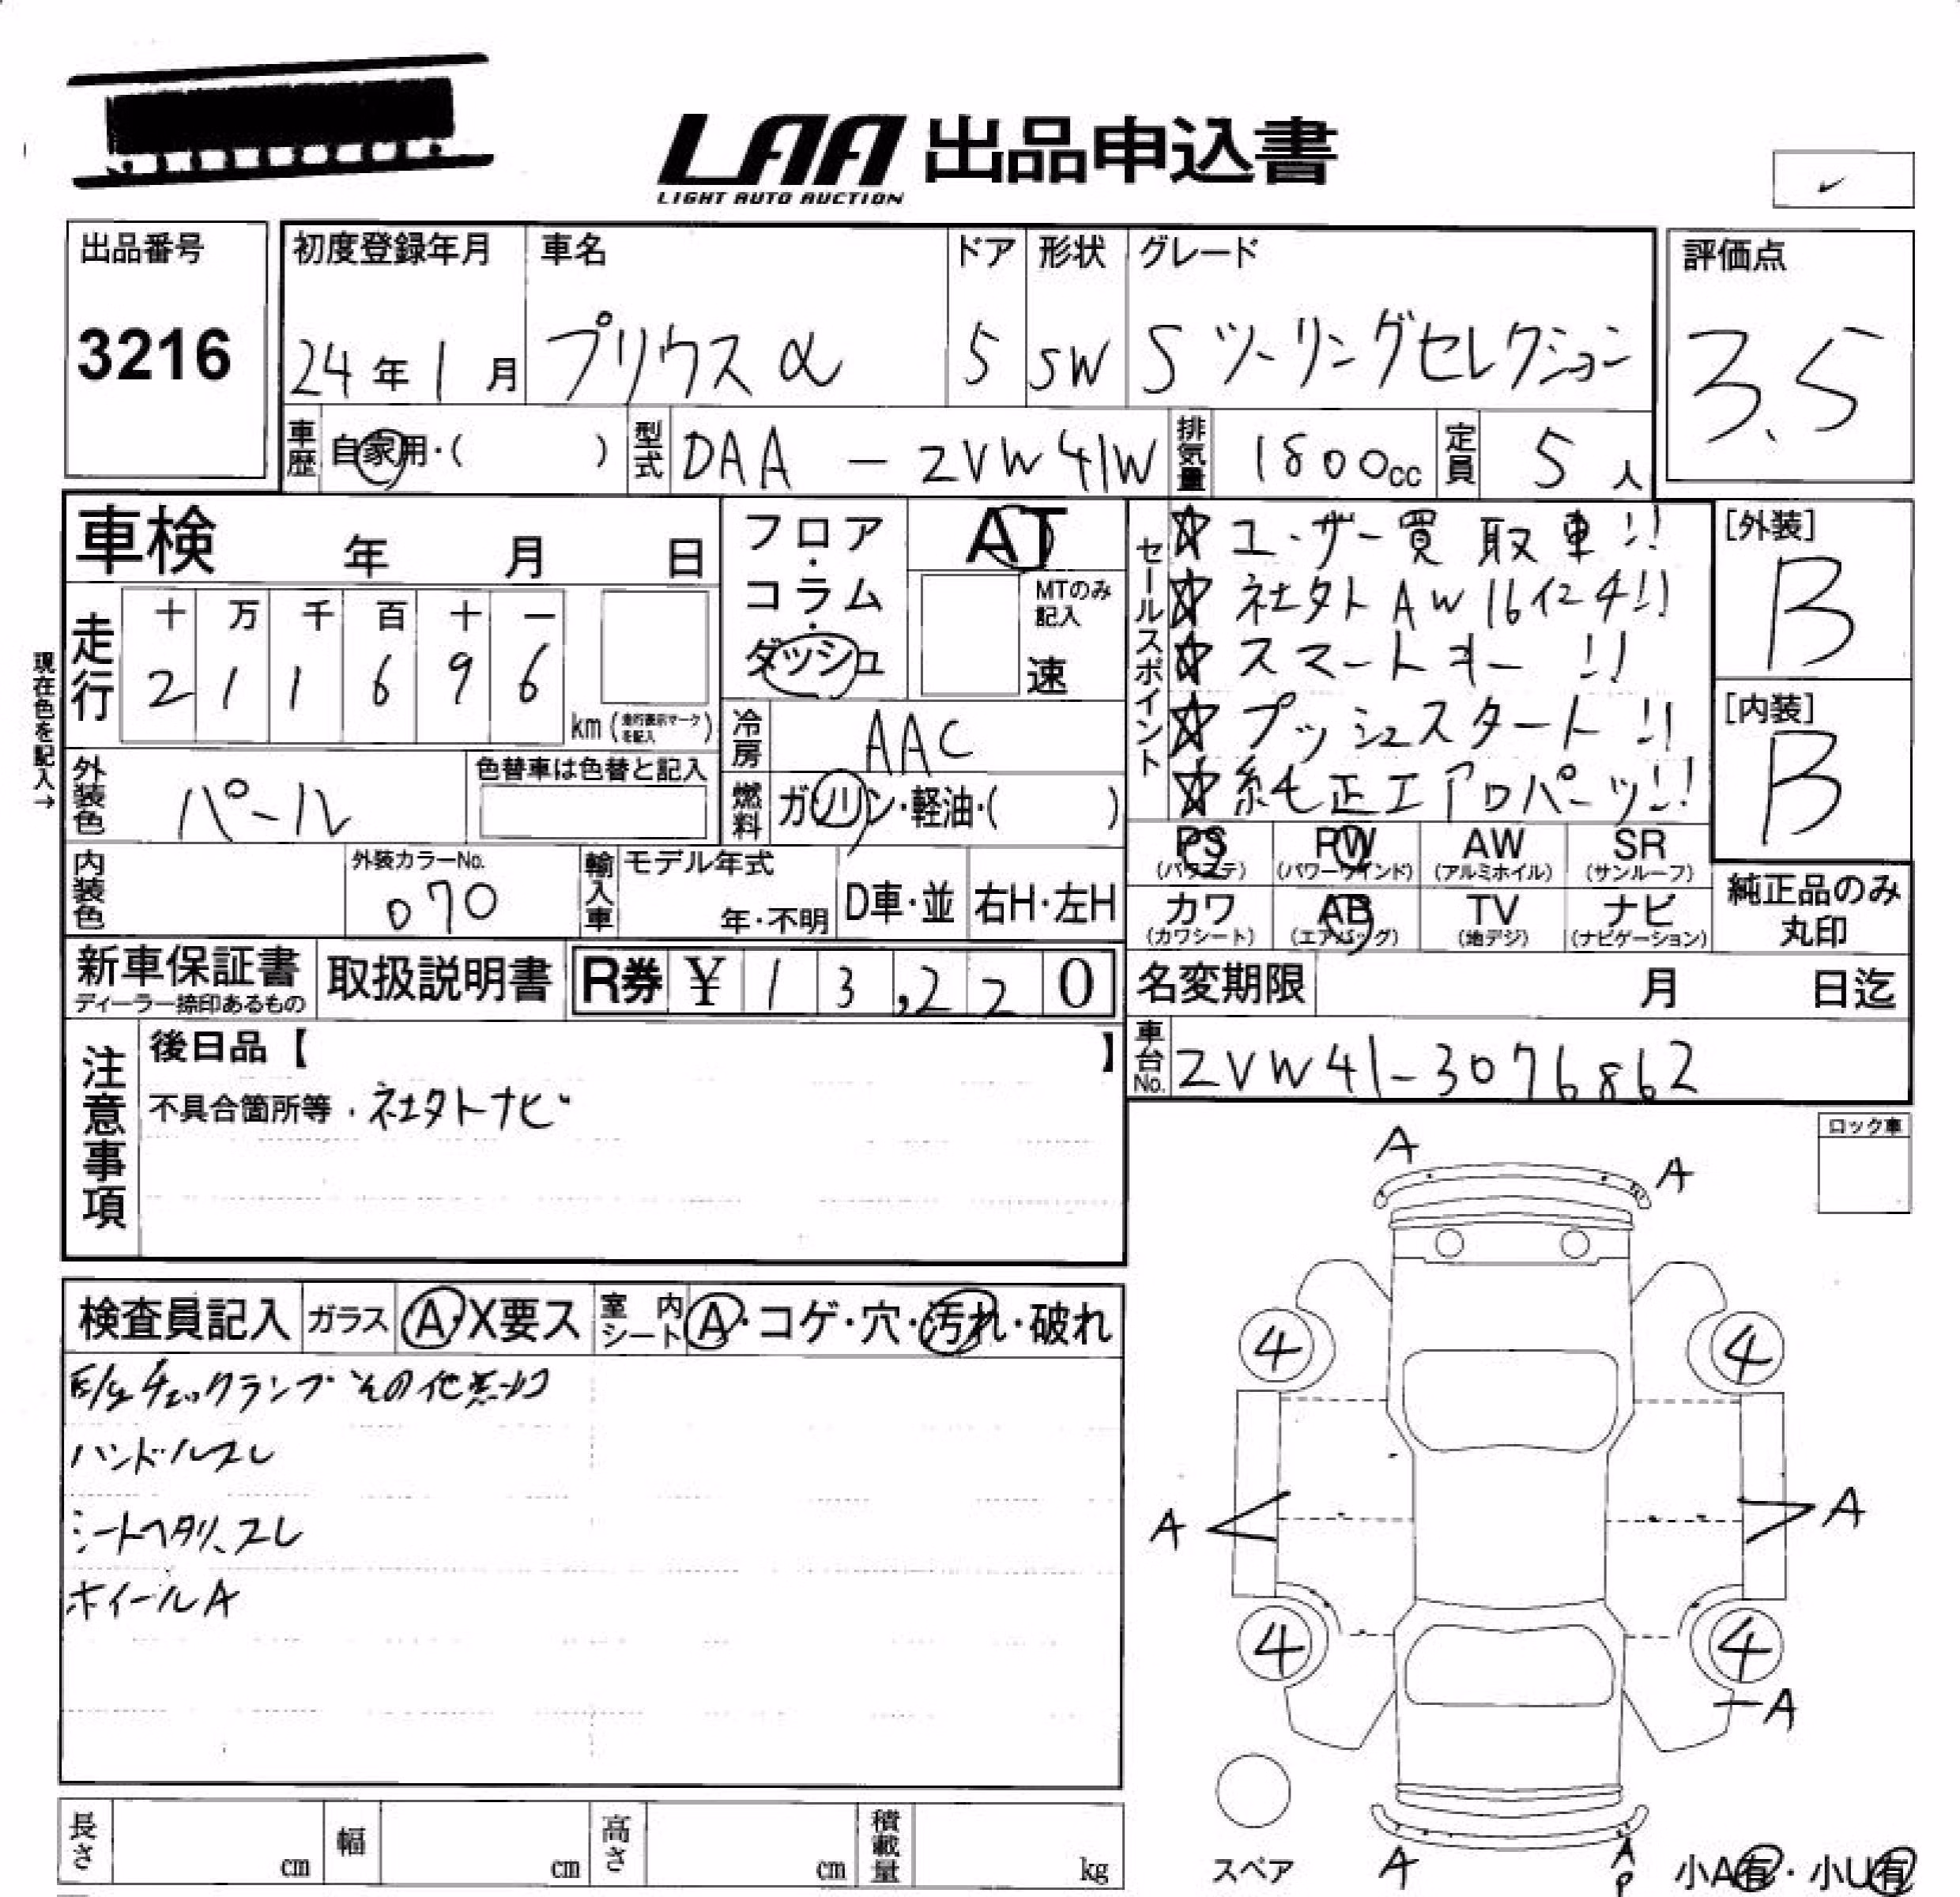 LAA 出品申込書
LIGHT AUTO AUCTION
出品番号
3216
初度登録年月
24年1月
車名
プリウスα
ドア
5
形状
SW
グレード
Sツーリングセレクション
評価点
3.5
車歴 自家用・( )
型式 DAA-ZVW41W
排気量 1800cc
定員 5人
車検 年 月 日
フロア・コラム・ダッシュ
AT
MTのみ記入
速
セールスポイント
☆ユーザー買取車!!
☆社外AW16インチ!!
☆スマートキー!!
☆プッシュスタート!!
☆純正エアロパーツ!!
[外装]
B
[内装]
B
現在色を記入→
走行
十 万 千 百 十 一
2 1 1 6 9 6
km(走行表示マークを記入)
冷房 AAC
外装色 パール
色替車は色替と記入
燃料 ガソリン・軽油・( )
内装色
外装カラーNo.
070
輸入車
モデル年式
年・不明
D車・並
右H・左H
PS (パワステ)
PW (パワーウインド)
AW (アルミホイル)
SR (サンルーフ)
カワ (カワシート)
AB (エアバッグ)
TV (地デジ)
ナビ (ナビゲーション)
純正品のみ丸印
新車保証書
ディーラー捺印あるもの
取扱説明書
R券 ¥13,220
名変期限 月 日迄
注意事項
後日品【 】
不具合箇所等・社外ナビ
車台No. ZVW41-3076862
ロック車
検査員記入
ガラス A・X要ス
室内シート A・コゲ・穴・汚れ・破れ
チェックランプその他点灯
ハンドルスレ
シートヘタリ、スレ
ホイールA
A
A
4
4
A
A
4
4
A
A
A
P
スペア
小A有・小U有
長さ cm
幅 cm
高さ cm
積載量 kg